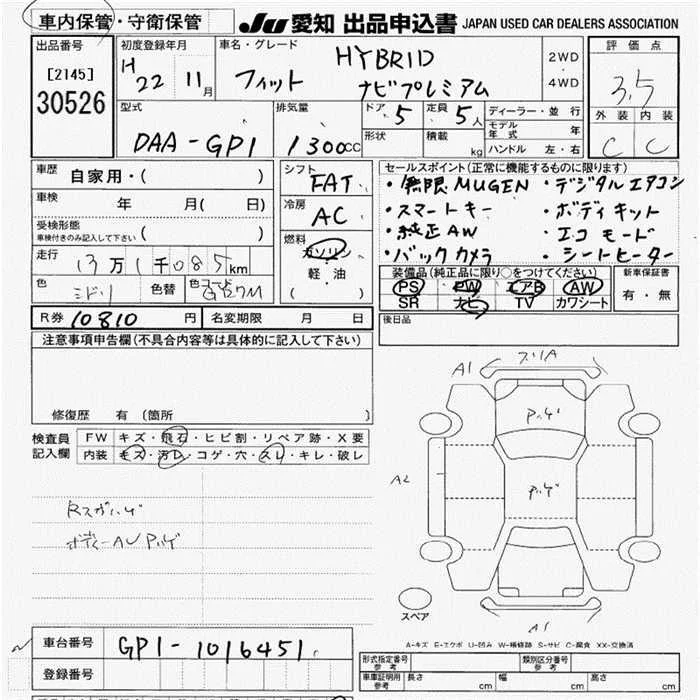 車内保管・守衛保管
JU 愛知 出品申込書 JAPAN USED CAR DEALERS ASSOCIATION
出品番号 初度登録年月 車名・グレード 評価点
[2145] H 22 11月 フィット HYBRID 2WD
30526 ナビプレミアム ・ 4WD 3.5
型式 排気量 ドア 5 定員 5人 ディーラー・並行 外装 内装
DAA-GP1 1300cc 形状 積載 kg モデル年式 年 C C
ハンドル 左・右
車歴 自家用・( ) シフト FAT セールスポイント(正常に機能するものに限ります)
車検 年 月( 日) 冷房 AC ・無限MUGEN ・デジタルエアコン
受検形態 ( ) ・スマートキー ・ボディキット
車検付きのみ記入して下さい ・純正AW ・エコモード
走行 13万1千085km 燃料 ガソリン ・バックカメラ ・シートヒーター
軽・油 装備品(純正品に限り○をつけてください) 新車保証書
色 ミドリ 色替 色コード ( ) PS PW エアB AW 有・無
SR ナビ TV カワシート
R券 10810円 名変期限 月 日 後日品
注意事項申告欄(不具合内容等は具体的に記入して下さい)
修復歴 有 (箇所 )
検査員 FW キズ・飛石・ヒビ割・リペア跡・X要
記入欄 内装 キズ・汚レ・コゲ・穴・スレ・キレ・破レ
A1
A2
A1
スペア
A-キズ E-エクボ U-凹み W-補修跡 S-サビ C-腐食 XX-交換済
車台番号 GP1-1016451
登録番号
形式指定番号 参考 類別区分番号 参考
車庫証明用 参考 長さ cm 幅 cm 高さ cm